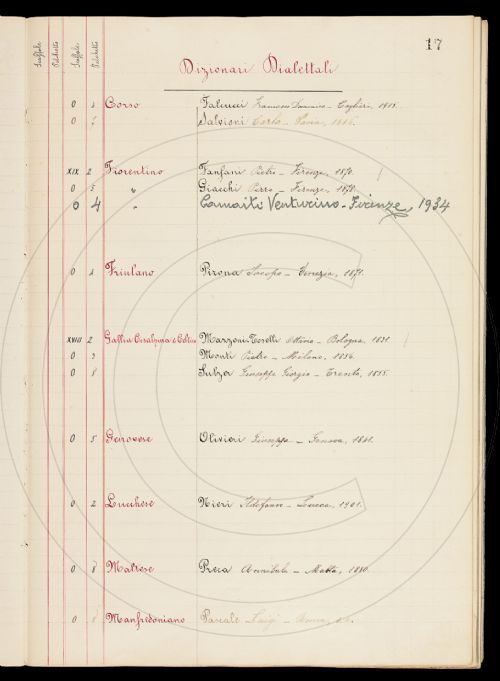 17
Scaffale Palchetto Scaffale Palchetto
Dizionari Dialettali
Corso Falcucci Francesco Domenico - Cagliari, 1915.
0 Salvioni Carlo - Pavia, 1916.
XIX 2 Fiorentino Fanfani Pietro - Firenze, 1870.
0 5 " Giacchi Pirro - Firenze, 1878.
0 4 " Camaiti Venturino - Firenze, 1934
0 Friulano Pirona Jacopo - Venezia, 1871.
XVIII 2 Gallia Cisalpina e Celtico Mazzoni-Toselli Ottavio - Bologna, 1831.
0 3 Monti Pietro - Milano, 1856.
0 8 Sulzer Giuseppe Giorgio - Trento, 1855.
0 5 Genovese Olivieri Giuseppe - Genova, 1841.
0 2 Lucchese Nieri Idelfonso - Lucca, 1901.
0 8 Maltese Preca Annibale - Malta, 1880.
0 Manfredoniano Pascale Luigi -